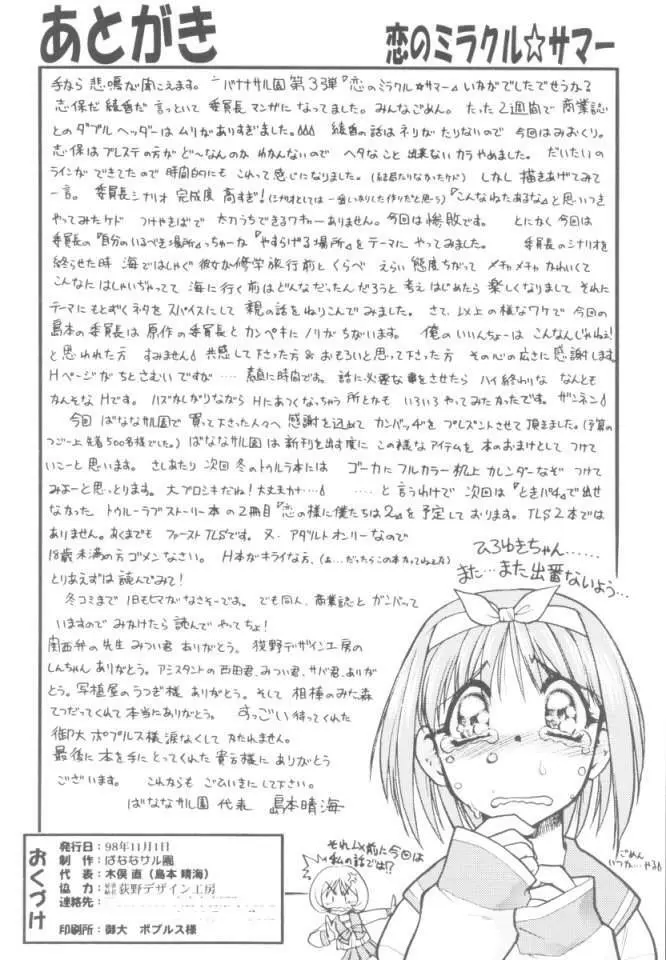 あとがき
恋のミラクル☆サマー
手から悲鳴が聞こえます。バナナサル園第33弾『恋のミラクル☆サマー』いかがでしたでせうか?
志保だ綾香だ言っといて委員長マンガになってました。みんなごめん。たった2週間で商業誌
とのダブルヘッダーはムリがありすぎました。綾香の話はネリがたりないので今回はみおくり。
志保はプレステの方がど〜なんのかわかんないのでヘタなこと出来ないカラやめました。だいたいの
ラインができてたので時間的にもこれって感じになりました。しかし描きあげてみて
一言。委員長シナリオ完成度高すぎ!『こんなねたあるな』と思いつき
やってみたケドつけやきばで太刀うちできるワキャーありません。今回は惨敗です。とにかく今回は
委員長の『自分のいるべき場所』っちゅーか『やすらげる場所』をテーマにやってみました。委員長のシナリオを
終らせた時海ではしゃぐ彼女が修学旅行前とくらべえらい態度ちがってメチャメチャかわいくて
こんなにはしゃいぢゃってて海に行く前はどんなだったんだろうと考えはじめたら楽しくなりましてそれに
テーマにもとずくネタをスパイスにして親の話をねりこんでみました。さて、以上の様なワケで今回の
島本の委員長は原作の委員長とカンペキにノリがちがいます。俺のいいんちょーはこんなんじゃねぇ!
と思われた方すみません。共感して下さった方&おもろいと思って下さった方その心の広さに感謝します。
Hページがちとさむいですが‥‥素直に時間です。話に必要な事をさせたらハイ終わりな なんとも
かんそなHです。ハズかしがりながらHにあつくなっちゃう所とかもいろいろやってみたかったです。ザンネン。
今回ばななサル園で買って下さった人々へ感謝を込めてカンバッヂをプレズントさせて頂きました。(予算の
つごー上先着500名様でした。)ばななサル園は新刊を出す度にこの様なアイテムを本のおまけとしてつけて
いこーと思います。さしあたり次回冬のトゥルラブ本にはゴーカにフルカラー机上カレンダーなぞつけて
みよーと思っとります。大ブロシキだね!大丈夫か‥‥。‥‥と言うわけで次回は『ときパチ』で出せ
なかったトゥルーラブストーリー本の2冊目『恋の様に僕たちは2』を予定しております。TLS2本では
ありません。あくまでもファーストTLSです。又、アダルトオンリーなので
18歳未満の方ゴメンなさい。H本がキライな方、
とりあえずは読んでみて!
冬コミまで1日もヒマがなさそーです。でも同人、商業誌とガンバって
いますのでみかけたら読んでやってちょ!
関西弁の先生みつい君ありがとう。荻野デザイン工房の
しんちゃんありがとう。アシスタントの西田君、みつい君、サバ君、ありが
とう。写植屋のうつぎ様ありがとう。そして相棒のみた森
てつだってくれて本当にありがとう。すっごい待ってくれた
御大ポプルス様涙なくしてかたれません。
最後に本を手にとってくれた貴方様にありがとう
ございます。これからもごひいきにして下さい。
ばななサル園 代表 島本晴海
ひろゆきちゃん‥‥‥
また…また出番ないよう…
ごめん
いつか…やる
それ以前に今回は
私の話では!?
おくづけ
発行日:98年11月1日
制 作:ばななサル園
代 表:木俣 直(島本 晴海)
協 力:荻野デザイン工房
連絡先:
印刷所:御大 ポプルス様